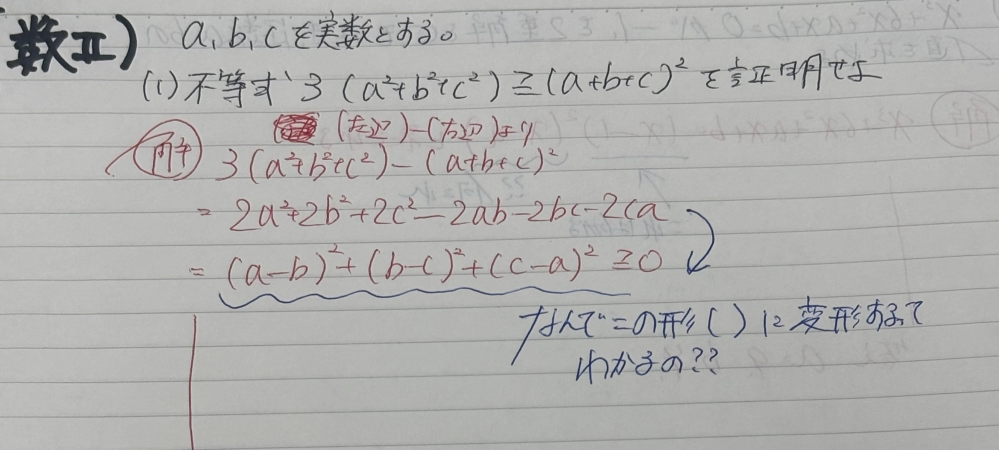 数Ⅱ) a, b, c を実数とする。
(1) 不等式 3(a²+b²+c²) ≧ (a+b+c)² を証明せよ
(左辺)-(右辺)より
解 3(a²+b²+c²) - (a+b+c)²
= 2a²+2b²+2c²-2ab-2bc-2ca
= (a-b)²+(b-c)²+(c-a)² ≧0
なんでこの形( )に変形するって
わかるの??